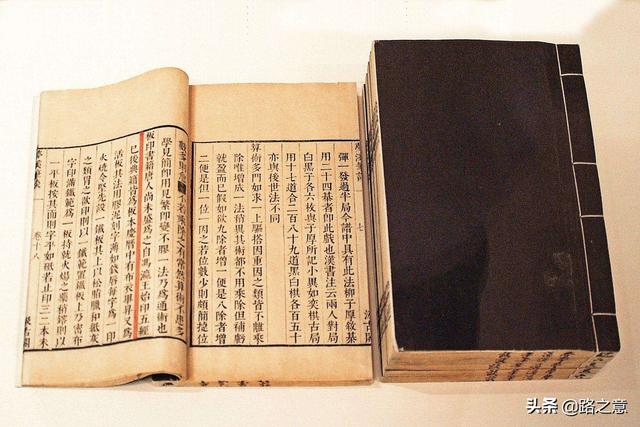 夢溪筆談
彈一發過半局今譜中具有此法柳子厚敘棊
用二十四棊者即此戲也漢書注云兩人對局
白黑子各六枚與子厚所記小異如奕棋古局
用十七道合二百八十九道黑白棋各百五十
亦與後世法不同
算術多門如求一上驅搭因重因之類皆不離乘
除唯增成一法稍異其術都不用乘除但補虧
就盈而已假如欲九除者增一便是八除者增
二便是但一位一因之若位數少則頗簡捷位
數多則愈繁不若乘除之有常然算術不患多
學見簡即用見繁即變不膠一法乃為通術也
板印書籍唐人尚未盛為之自馮瀛王始印五經
已後典籍皆為板本慶曆中有布衣畢昇又為
活板其法用膠泥刻字薄如錢脣每字為一印
火燒令堅先設一鐵板其上以松脂臘和紙灰
之類冒之欲印則以一鐵範置鐵板上乃密布
字印滿鐵範為一板持就火煬之藥稍鎔則以
一平板按其面則字平如砥若止印三二本未
卷十八
汲古閣
头条 @路之意